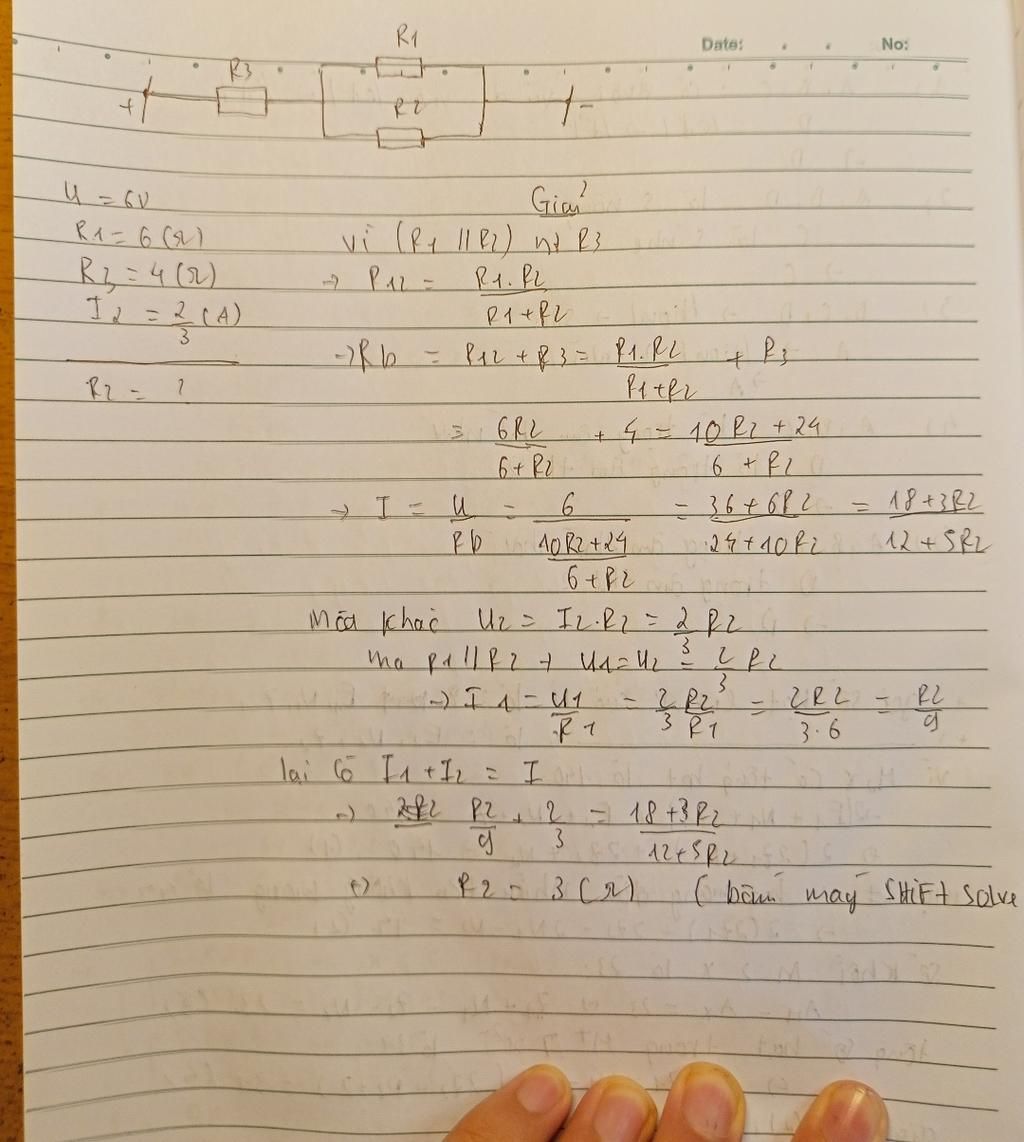 Date: No:
R1
R3
R2
+ -
U = 6V
R1 = 6 (Ω)
R3 = 4 (Ω)
I2 = 2/3 (A)
R2 = ?
Giải
Vì (R1 // R2) nt R3
→ R12 = R1.R2/R1+R2
→ Rb = R12 + R3 = R1.R2/R1+R2 + R3
= 6R2/6+R2 + 4 = 10R2+24/6+R2
→ I = U/Rb = 6/10R2+24/6+R2 = 36+6R2/24+10R2 = 18+3R2/12+5R2
Mặt khác U2 = I2.R2 = 2/3 R2
mà R1 // R2 → U1=U2 = 2/3 R2
→ I1 = U1/R1 = 2/3 R2/R1 = 2R2/3.6 = R2/9
lại có I1 + I2 = I
→ R2/9 + 2/3 = 18+3R2/12+5R2
↔ R2 = 3 (Ω) (bấm máy SHIFT Solve